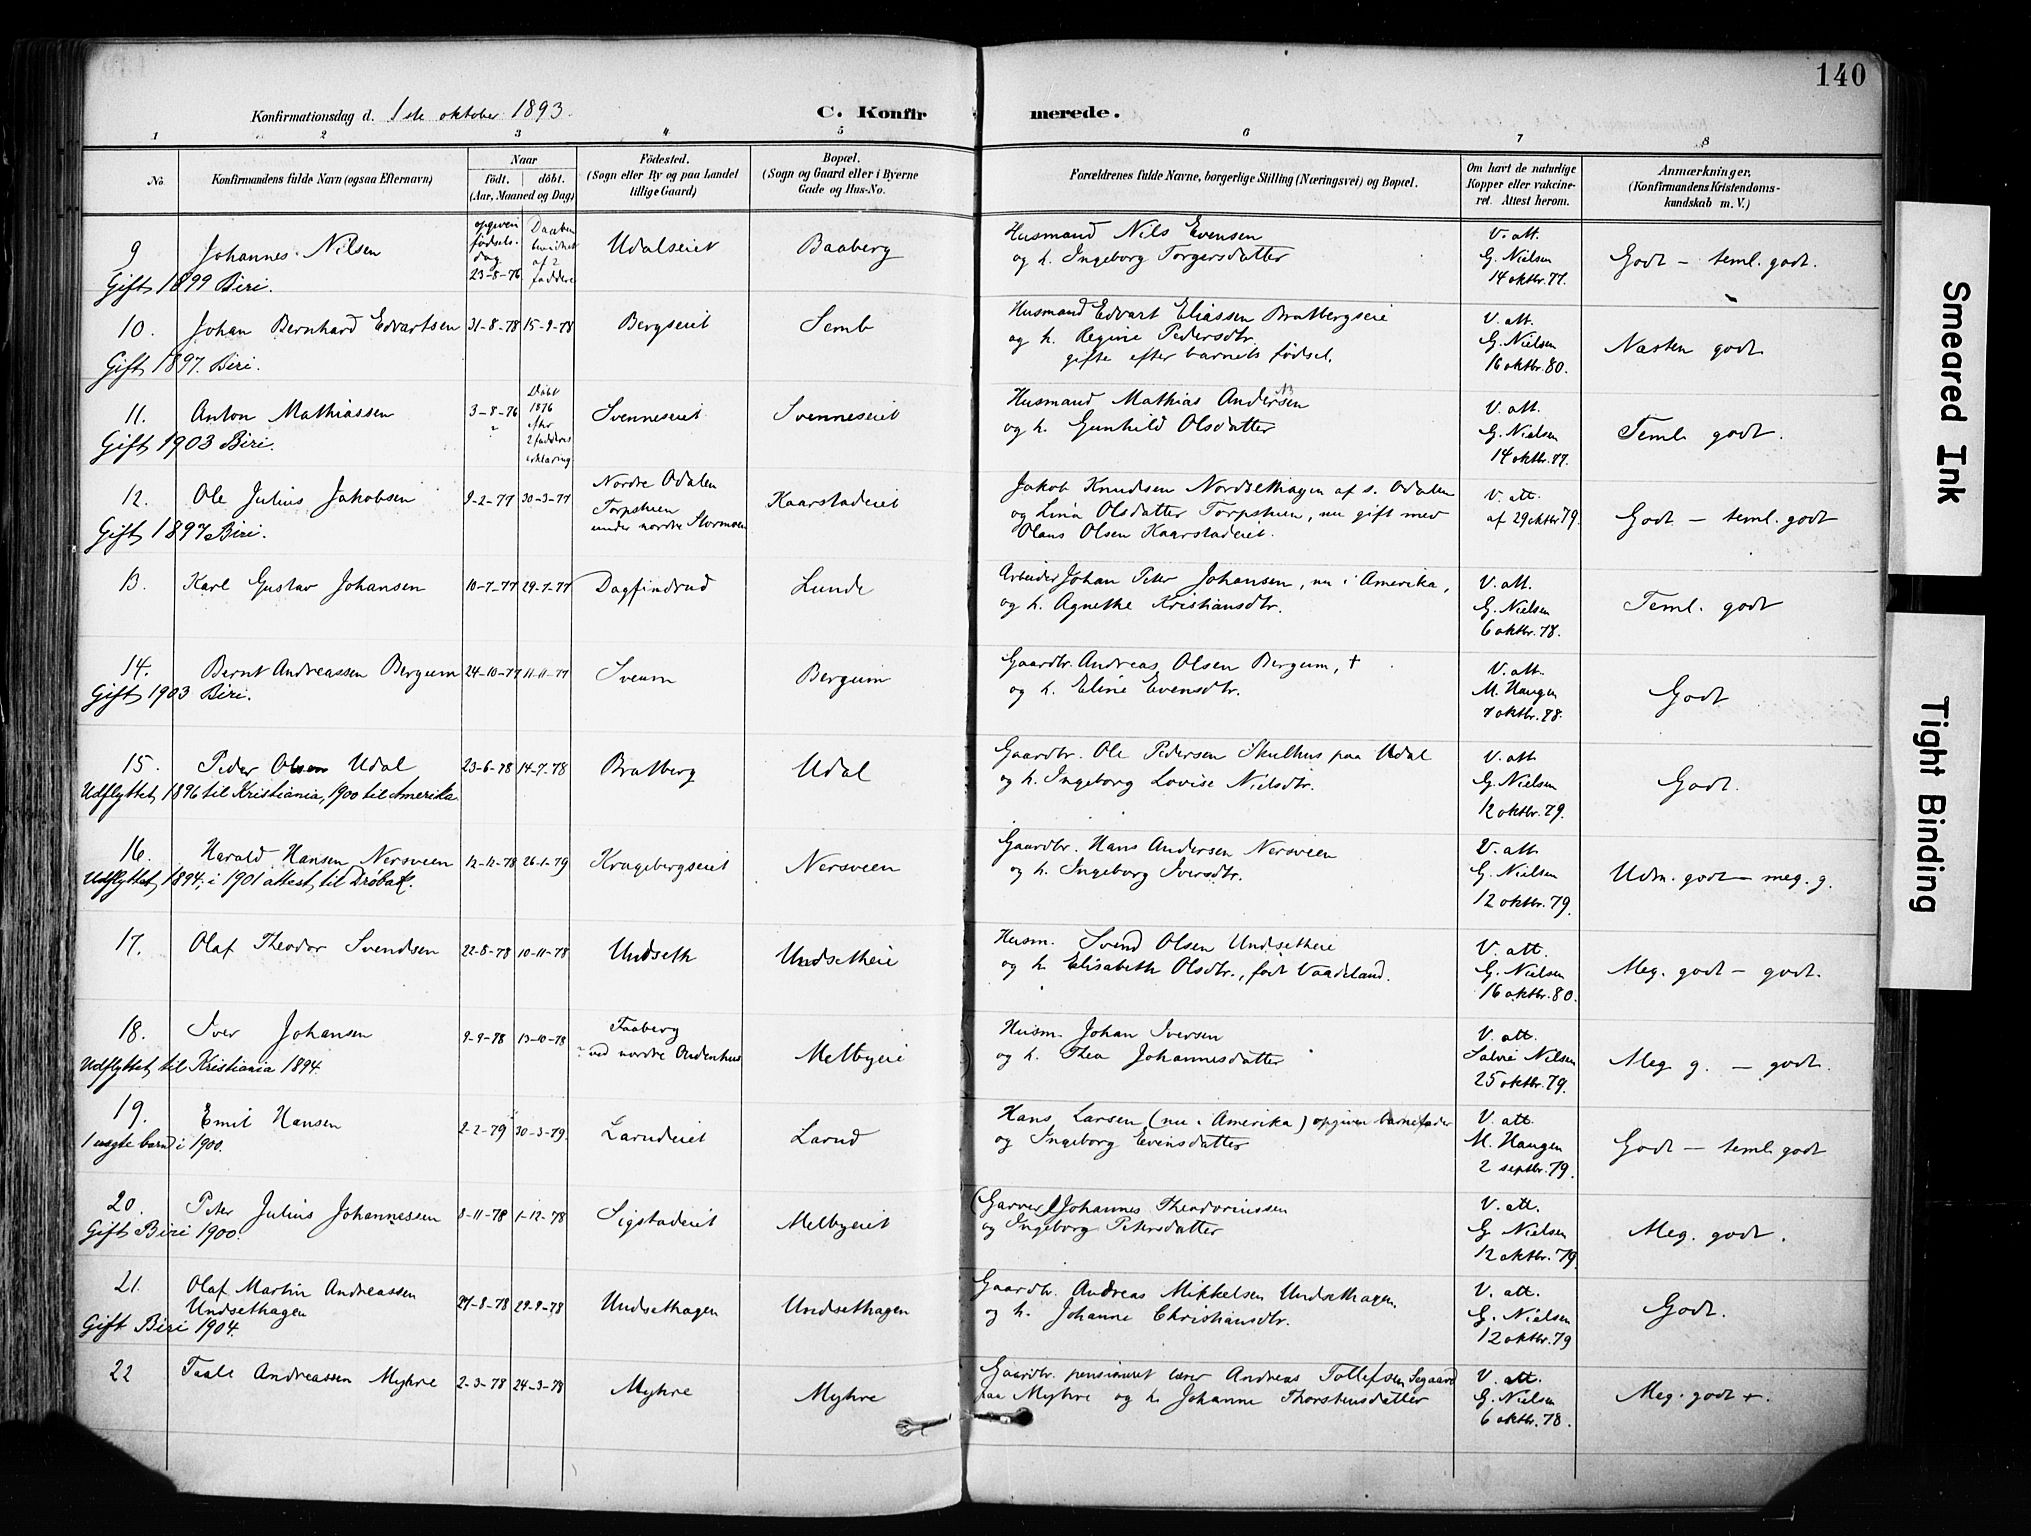 140
Konfirmationsdag d. 1ste oktober 1893.
C. Konfirmerede.
1 2 3 4 5 6 7 8
No.
Konfirmandens fulde Navn (ogsaa Efternavn)
Naar
født. døbt.
(Aar, Maaned og Dag)
Fødested.
(Sogn eller By og paa Landet
tillige Gaard)
Bopæl.
(Sogn og Gaard eller i Byerne
Gade og Hus-No.
Forældrenes fulde Navne, borgerlige Stilling (Næringsvei) og Bopæl.
Om havt de naturlige
Kopper eller vakcine-
ret. Attest herom.
Anmærkninger.
(Konfirmandens Kristendoms-
kundskab m. V.)
9 Johannes Nilsen
Gift 1899 Biri.
opgiven
fødsels-
dag
23-8-76
Daaben
bevidnet
af 2
faddere
Udalseiet
Baaberg
Husmand Nils Evensen
og h. Ingeborg Torgersdatter
V. att.
G. Nielsen
14 oktbr. 77.
Godt - teml. godt.
10. Johan Bernhard Edvartsen
Gift 1897. Biri.
31-8-78 15-9-78
Bergseiet
Semb
Husmand Edvart Eliassen Bratbergseie
og h. Regine Pedersdtr.
gifte efter barnets fødsel.
V. att.
G. Nielsen
16 oktbr. 80.
Næsten godt
11. Anton Mathiassen
Gift 1903 Biri.
3-8-76
?
Døbt
1876
efter
2 fadderes
erklæring
Svenneseiet
Svenneseiet
Husmand Mathias Andersen
og h. Gunhild Olsdatter
V. att.
G. Nielsen
14 oktbr. 77.
Teml. godt.
12. Ole Julius Jakobsen
Gift 1897 Biri.
9-2-77 30-3-77
Nordre Odalen
Torpstuen
under nordre Stormoen
Kaarstadeiet
Jakob Knudsen Nordsethagen af s. Odalen
og Lina Olsdatter Torpstuen, nu gift med
Olaus Olsen Kaarstadeiet.
V. att.
af 29 oktbr 79.
Godt - teml. godt
13. Karl Gustav Johansen
10-7-77 29-7-77
Dagfindrud
Lunde
Arbeider Johan Peter Johansen, nu i Amerika,
og h. Agnethe Kristiansdtr.
V. att.
G. Nielsen
6 oktbr. 78.
Teml. godt
14. Bernt Andreassen Bergum
Gift 1903 Biri.
24-10-77 11-11-77
Sveum
Bergum
Gaardbr. Andreas Olsen Bergum, †
og h. Eline Evensdtr.
V. att.
M. Haugen
7 oktbr. 78.
Godt
15. Peder Olsen Udal
Udflyttet 1896 til Kristiania, 1900 til Amerika
23-6-78 14-7-78
Bratberg
Udal
Gaardbr. Ole Pedersen Skulhus paa Udal
og h. Ingeborg Lovise Nielsdtr.
V. att.
G. Nielsen
12 oktbr. 79.
Godt.
16. Harald Hansen Nersveen
Udflyttet 1894; i 1901 attest til Drøbak.
12-12-78 26-1-79
Kragebergseiet
Nersveen
Gaardbr. Hans Andersen Nersveen
og h. Ingeborg Iversdtr.
V. att.
G. Nielsen
12 oktbr. 79.
Udm. godt - meg. g.
17. Olaf Theodor Svendsen
22-8-78 10-11-78
Undseth
Undsetheie
Husm. Svend Olsen Undsetheie
og h. Elisabeth Olsdtr., født Vaadeland.
V. att.
G. Nielsen
16 oktbr. 80.
Meg. godt - godt.
18. Iver Johansen
Udflyttet til Kristiania 1894.
9-9-78 13-10-78
Faaberg
ved nordre Audenhus
Melbyeie
Husm. Johan Iversen
og h. Thea Johannesdatter
V. att.
Salvé Nilsen
25 oktbr. 79.
Meg g. - godt.
19. Emil Hansen
1 uægte barn i 1900.
2-2-79 30-3-79.
Larudeiet
Larud
Hans Larsen (nu i Amerika) opgiven barnefader
og Ingeborg Evensdatter
V. att.
M. Haugen
2 septbr. 79.
Godt - teml. godt
20. Peter Julius Johannessen
Gift Biri 1900.
8-11-78 1-12-78
Sigstadeiet
Melbyeiet
(Garver) Johannes Theodorinssen
og Ingeborg Petersdatter
V. att.
G. Nielsen
12 oktbr. 79
Meg. godt.
21. Olaf Martin Andreassen
Undsethagen
Gift Biri 1904.
27-8-78 29-9-78
Undsethagen
Undsethagen
Gaardbr. Andreas Mikkelsen Undsethagen,
og h. Johanne Christiansdtr.
V. att.
G. Nielsen
12 oktbr. 79
Godt.
22 Taale Andreassen Myhre
2-3-78 24-3-78
Myhre
Myhre
Gaardbr. pensioneret lærer Andreas Tollefsen Segaard
paa Myhre og h. Johanne Thorstensdatter
V. att.
G. Nielsen
6 oktbr. 78.
Meg. godt +.
Smeared Ink
Tight Binding